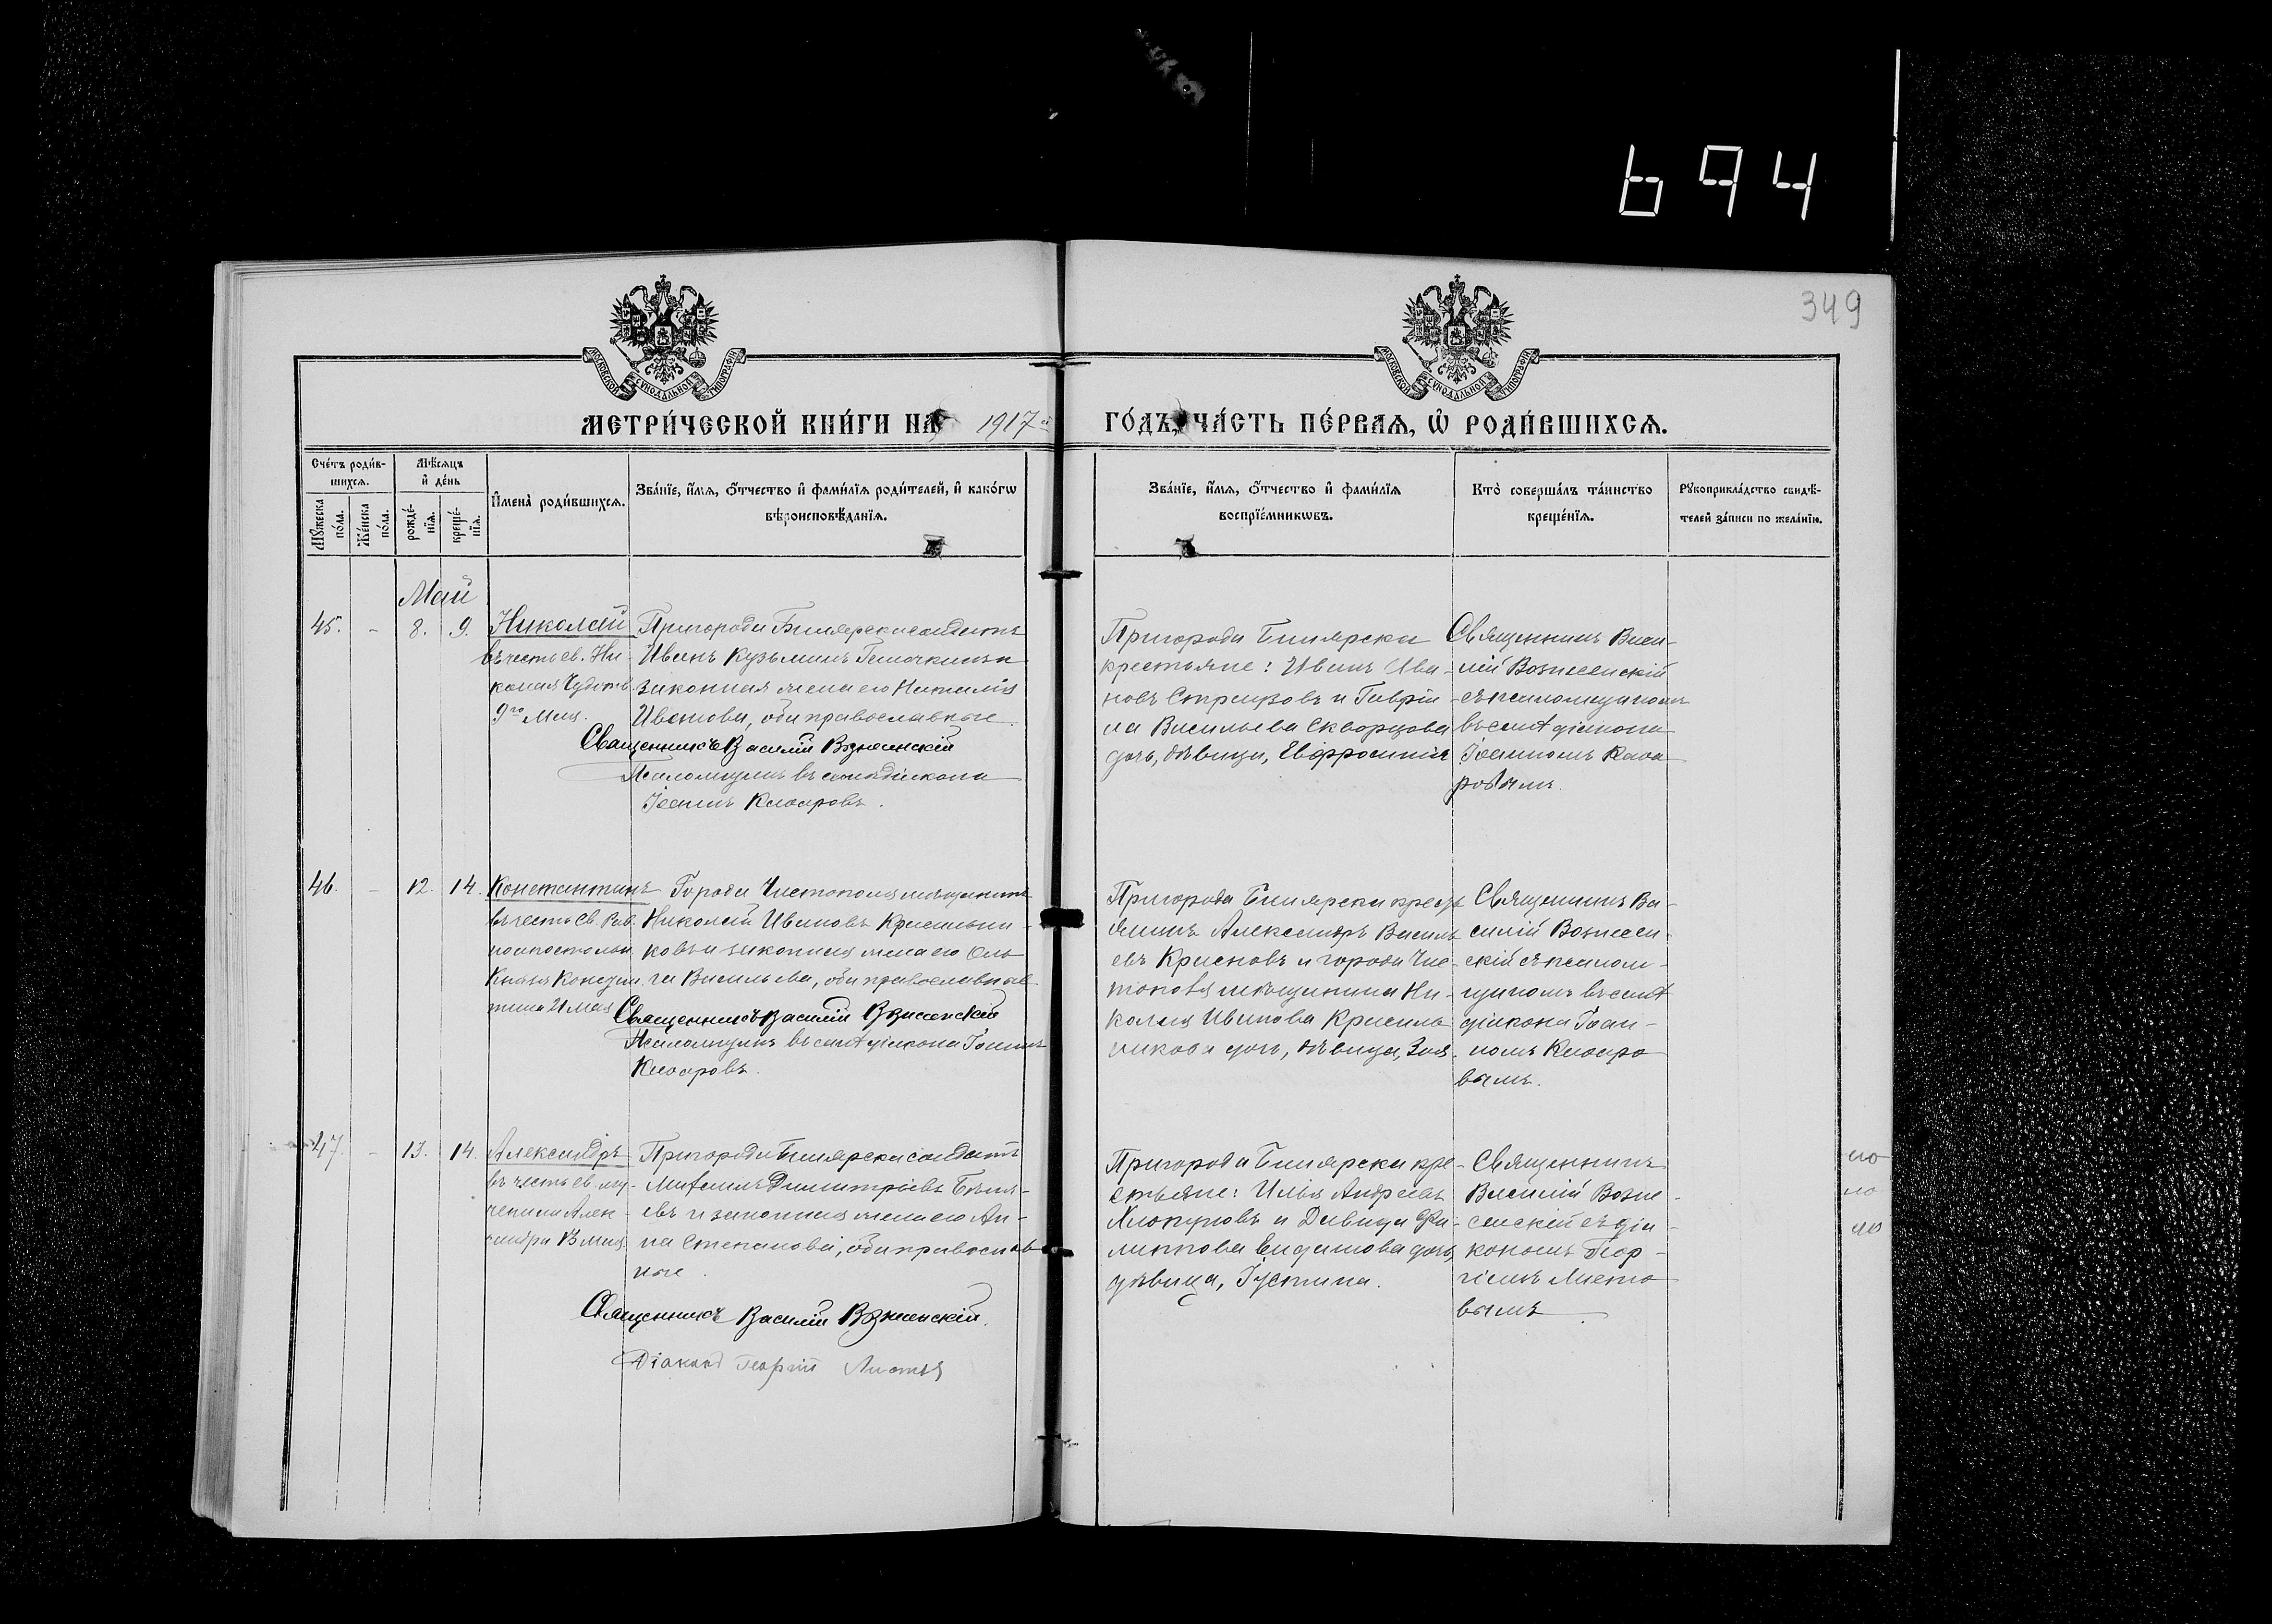 694
349
МОСКОВСКОЙ СѴНОДАЛЬНОЙ ТИПОГРАФІИ
МОСКОВСКОЙ СѴНОДАЛЬНОЙ ТИПОГРАФІИ
МЕТРИ́ЧЕСКОЙ КНИ́ГИ НА 1917 й
ГО́ДЪ, ЧА́СТЬ ПЕ́РВАѦ, Ѡ҆ РОДИ́ВШИХСѦ.
Сче́тъ роди́в-
шихсѧ.
Мѣ́сѧцъ
и҆ де́нь
Мꙋ́жеска
по́ла.
Же́нска
по́ла.
рожде́-
нїѧ.
креще́-
нїѧ.
И҆мена̀ роди́вшихсѧ.
Зва́нїе, и҆́мѧ, ѻ҆́тчество и҆ фами́лїѧ роди́телей, и҆ како́гѡ
вѣроисповѣ́данїѧ.
Зва́нїе, и҆́мѧ, ѻ҆́тчество и҆ фами́лїѧ
воспрїе́мникѡвъ.
Кто̀ соверша́лъ та́инство
креще́нїѧ.
Рꙋкоприкла́дство свидѣ́-
телей за́писи по жела́нїю.
Май
45. - 8. 9. Николай
въ честь св. Ни-
колая Чудотв.
9го Мая.
Пригорода Билярска солдатъ
Иванъ Кузьминъ и
законная жена его Наталія
Иванова, оба православные.
Священникъ Василій Вознесенскій
Псаломщикъ въ санѣ діакона
Іоаннъ Ключаровъ.
Пригорода Билярска
крестьяне: Иванъ Ива-
новъ Стрелковъ и Гаврі-
ла Васильева Скворцова
дочь, дѣвица, Евфросинія
Священникъ Васи-
лій Вознесенскій
съ псаломщикомъ
въ санѣ діакона
Іоанномъ Ключа
ровымъ.
46. - 12. 14. Константинъ
въ честь св. Рав.
ноапостольн.
Князя Констан-
тина 21 мая
Города Чистополя мѣщанинъ
Николай Ивановъ Красильни-
ковъ и законная жена его Оль
га Васильева, оба православные.
Священникъ Василій Вознесенскій
Псаломщикъ въ санѣ діакона Іоаннъ
Ключаровъ.
Пригорода Билярска крестъ
янинъ Александръ Василь
евъ Красновъ и города Чис-
тополя мѣщанина Ни-
колая Иванова Красиль
никова дочь, дѣвица, Зоя.
Священникъ Ва-
силій Вознесен-
скій съ псалом-
щикомъ въ санѣ
діакона Іоан-
номъ Ключаро
вымъ.
47. - 13. 14. Александръ
въ честь св. му-
ченика Алек-
сандра 13 мая.
Пригорода Билярска солдатъ
Михаилъ Димитріевъ
евъ и законная жена его Ан-
на Степанова, оба православ
ные.
Священникъ Василій Вознесенскій.
Діаконъ Георгій Листовъ
Пригорода Билярска кре-
стьяне: Илья Андреевъ
Хлопуновъ и Давида Фи-
липпова дочь,
дѣвица, Іустина.
Священникъ
Василій Возне-
сенскій съ діа-
кономъ Геор-
гіемъ Листо
вымъ.